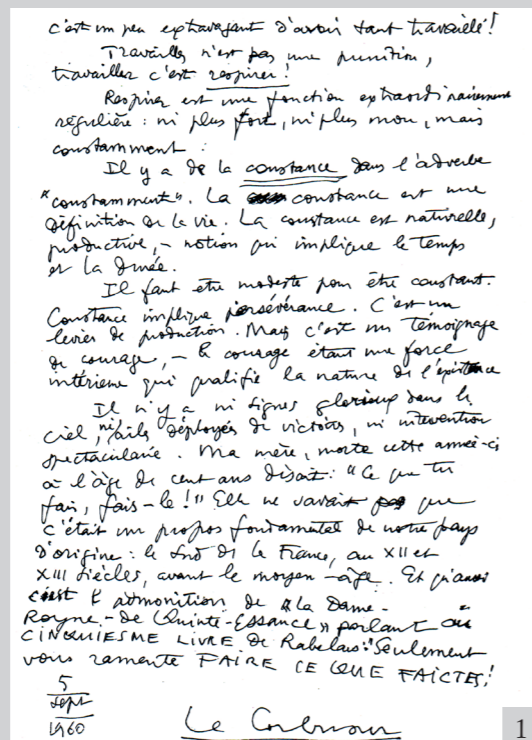 c'est un peu extravagant d'avoir tant travaillé!
Travailler n'est pas une punition,
travailler c'est respirer!
Respirer est une fonction extraordinairement
régulière : ni plus fort, ni plus mou, mais
constamment :
Il y a de la constance dans l'adverbe
"constamment". La constance est une
définition de la vie. La constance est naturelle,
productive, – notion qui implique le temps
et la durée.
Il faut être modeste pour être constant.
Constance implique persévérance. C'est un
levier de production. Mais c'est un témoignage
de courage, – le courage étant une force
intérieure qui qualifie la nature de l'existence
Il n'y a ni signes glorieux dans le
ciel, ni ailes déployées de victoires, ni intervention
spectaculaire. Ma mère, morte cette année-ci
à l'âge de cent ans disait: "Ce que tu
fais, fais-le!" Elle ne savait pas que
c'était un propos fondamental de notre pays
d'origine : le Sud de la France, au XII et
XIII siècles, avant le moyen-âge. Et qu'aussi
c'est l'admonition de "la Dame-
Royne-de Quinte-Essance" parlant au
CINQUIESME LIVRE de Rabelais: "Seulement
vous ramente FAIRE CE QUE FAICTES!
5
sept
1960
Le Corbusier
1